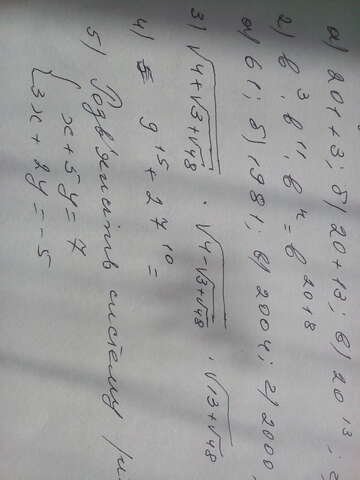 а) 201+3; б) 20+13; в) 20¹³; г
2) в³ · в¹¹ · в⁴ = в²⁰¹⁸
а) 61; б) 1981; в) 2004; г) 2000
3) √(4+√(3+√48)) · √(4-√(3+√48)) · √(13+√48)
4) 9¹⁵ + 27¹⁰ =
5) Розв'яжіть систему рі
{ x + 5y = 7
3x + 2y = -5